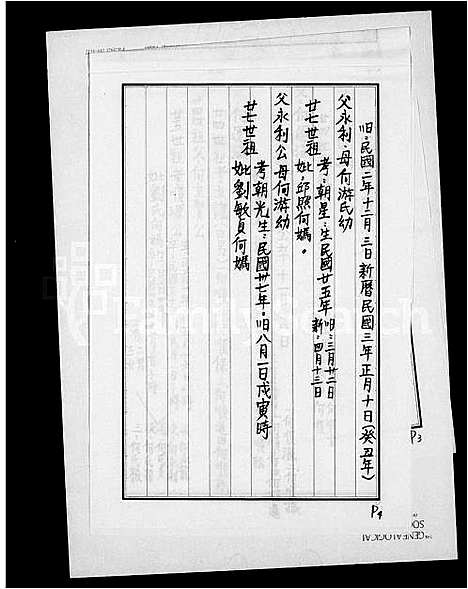 旧：民國二年十二月三日新曆民國三年正月十日(癸丑年)
父永利、母何游氏幼
考：朝星：生民國廿五年旧：三月廿二日
新：四月十三日
廿七世祖
妣：邱照何媽。
父永利公母何游幼
考朝光生：民國卅七年：旧八月一日戊寅時
廿七世祖
妣劉敏貞何媽
P3
P4
GENEALOGICAL
SO